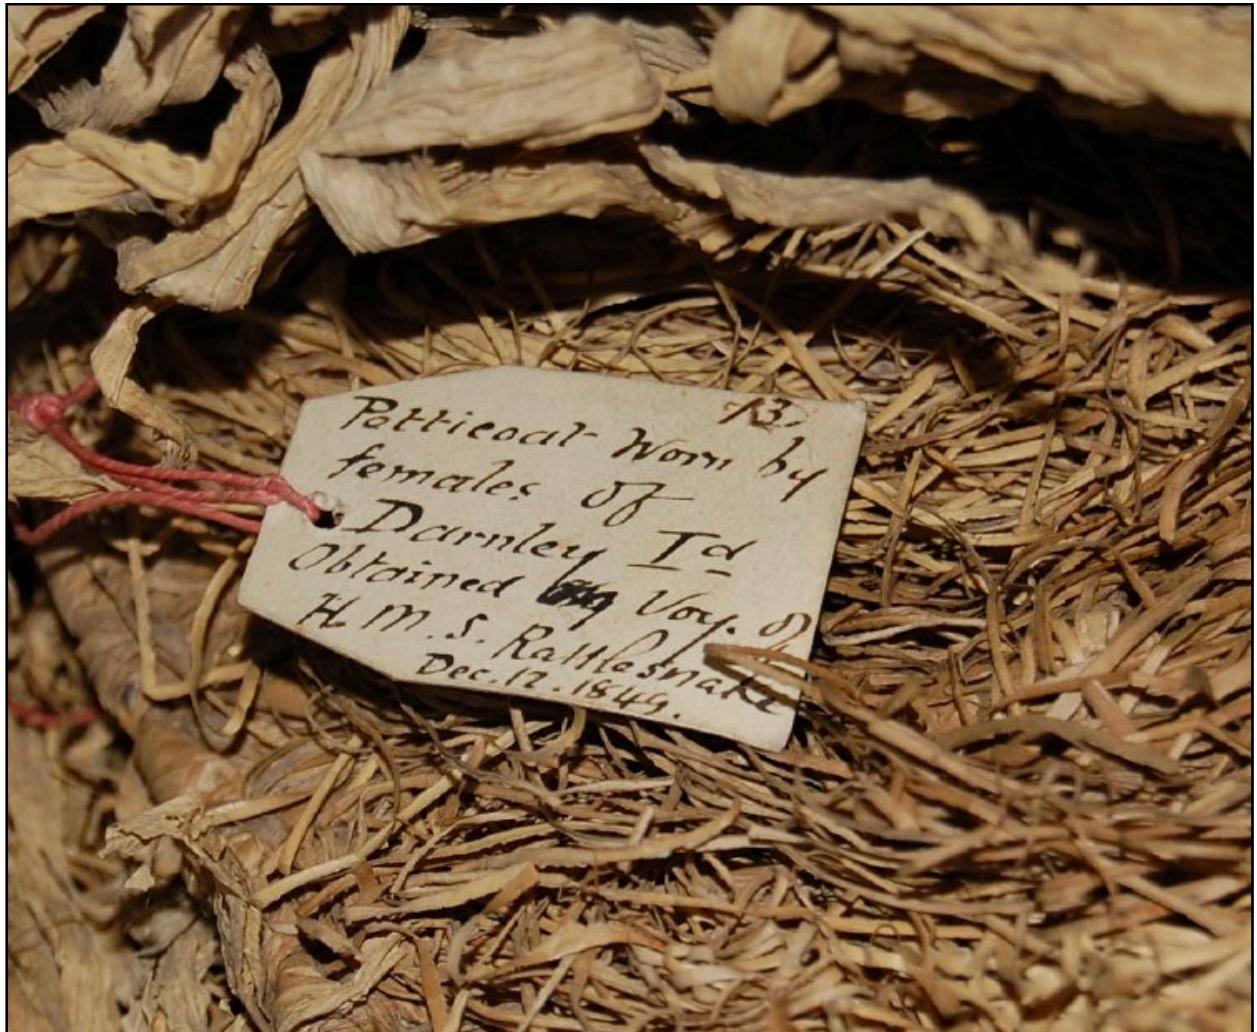 13.
Petticoat Worn by
females of
Darnley Id
Obtained Voy. of
H. M. S. Rattlesnake
Dec. 12. 1849.